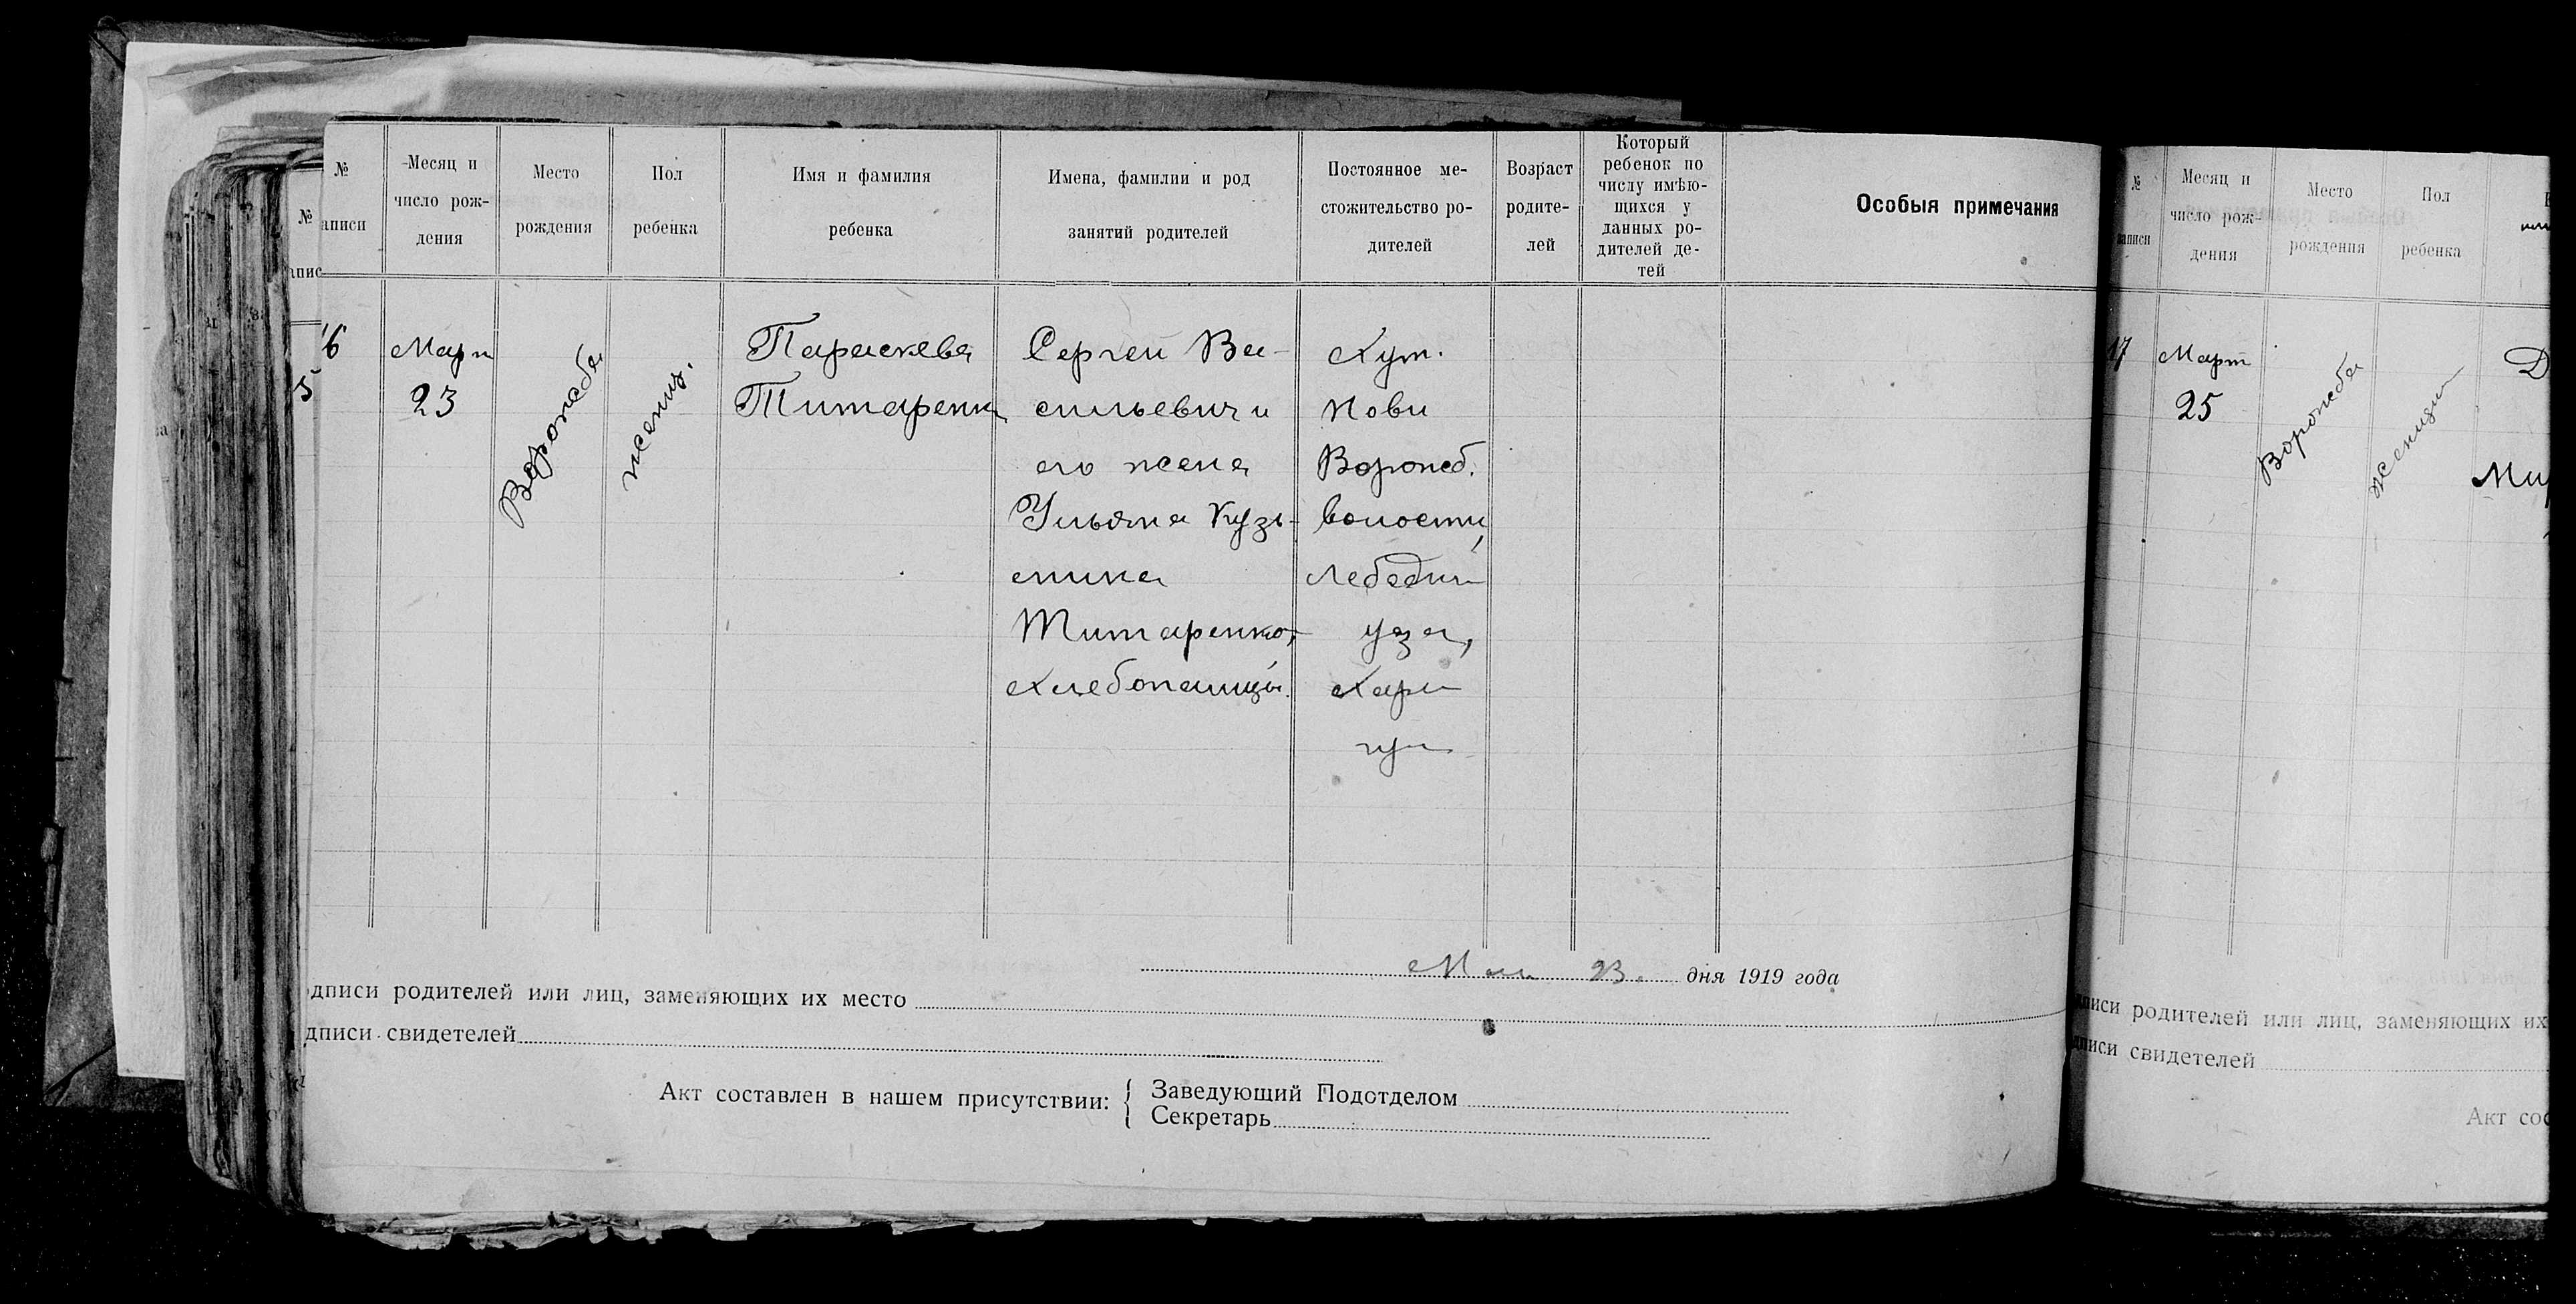 №
аписи
Месяц и
число рож-
дения
Место
рождения
Пол
ребенка
Имя и фамилия
ребенка
Имена, фамилии и род
занятий родителей
Постоянное ме-
стожительство ро-
дителей
Возраст
родите-
лей
Который
ребенок по
числу имѣю-
щихся у
данных ро-
дителей де-
тей
Особыя примечания
16
Март
23
Ворожба
женщ.
Параскева
Титаренк
Сергей Ва-
сильевич и
его жена
Ульяна Кузь-
мина
Титаренко,
хлебопашцы.
Хут.
Нови
Ворожб.
волости,
Лебедин
уза,
Хар
гу
23. дня 1919 года
одписи родителей или лиц, заменяющих их место
дписи свидетелей
Акт составлен в нашем присутствии:
Заведующий Подотделом
Секретарь
№
апис
5
№
аписи
Месяц и
число рож-
дения
Место
рождения
Пол
ребенка
17
Март
25
Ворожба
женщин
Д
Ми
писи родителей или лиц, заменяющих их
дписи свидетелей
Акт сос